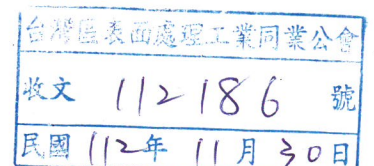 台灣區表面處理工業同業公會
收文 112186 號
民國 112年 11月 30日